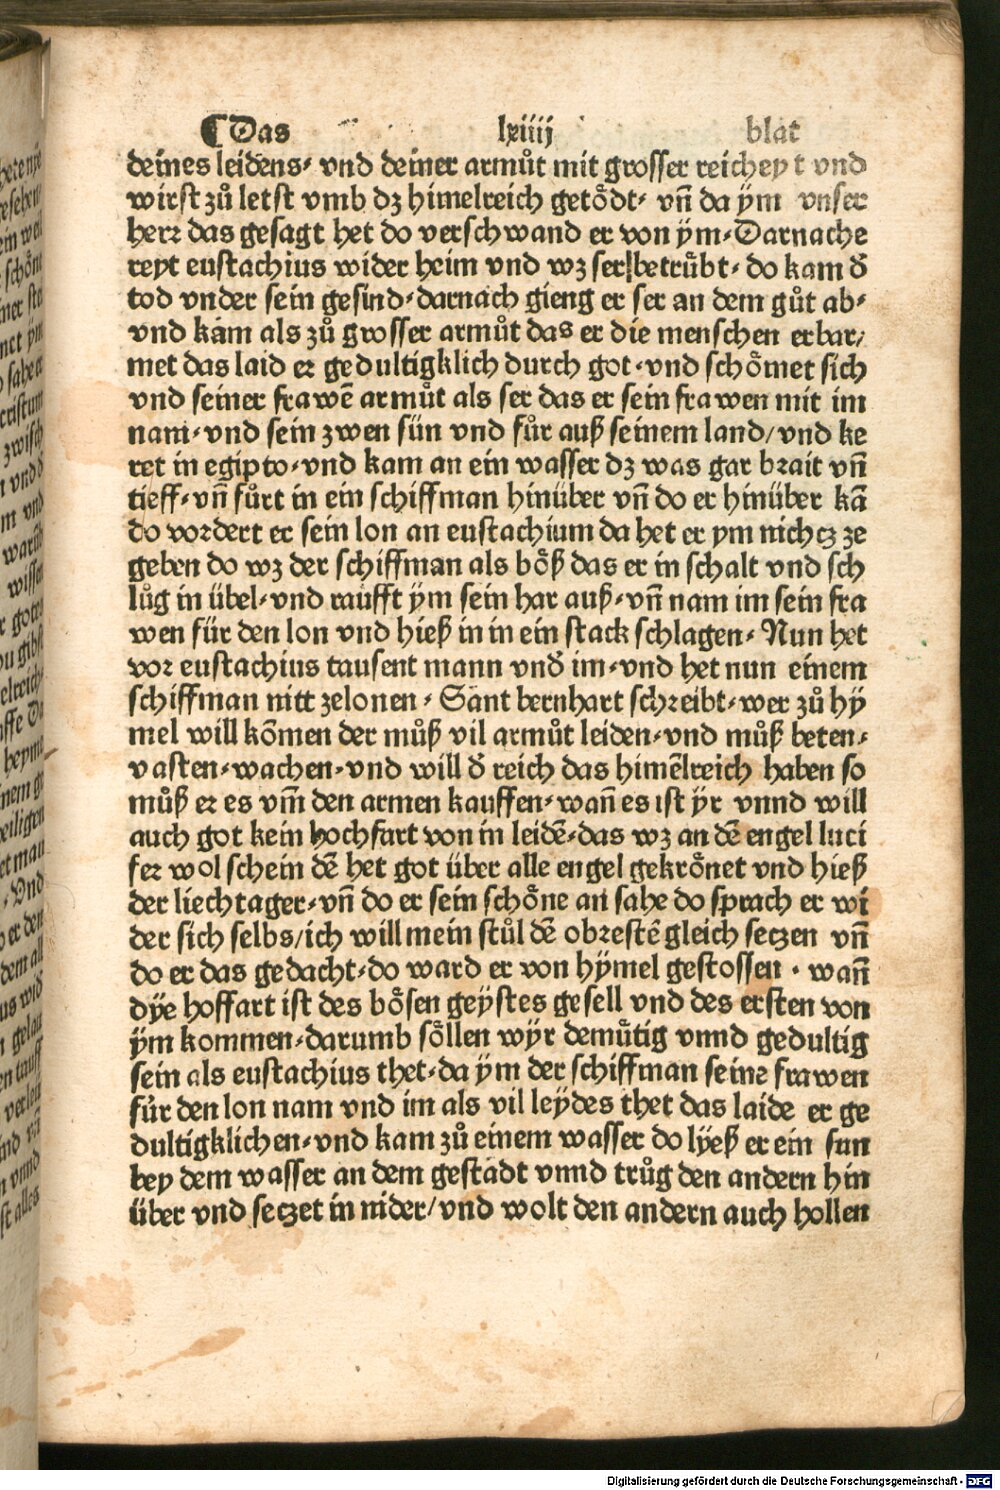 ¶Das lxiiij blat
deines leidens⸗ vnd deiner armůt mit grosser reicheyt vnd
wirst zů letst vmb dz himelreich getoͤdt⸗ vñ da ÿm vnser
herꝛ das gesagt het do verschwand er von ÿm⸗Darnache
reyt eustachius wider heim vnd wz ser betruͤbt⸗ do kam đ
tod vnder sein gesind⸗darnach gieng er ser an dem gůt ab⸗
vnd kam als zů grosser armůt das er die menschen erbar/
met das laid er gedultigklich durch got⸗vnd schoͤmet sich
vnd seiner frawē armůt als ser das er sein frawen mit im
nam⸗vnd sein zwen sün vnd fůr auß seinem land/vnd ke
ret in egipto⸗vnd kam an ein wasser dz was gar bꝛait vñ
tieff⸗vñ fůrt in ein schiffman hinüber vñ do er hinüber kā
do voꝛdert er sein lon an eustachium da het er ym nichcz ze
geben do wz der schiffman als boͤß das er in schalt vnd sch
lůg in übel⸗vnd raufft ÿm sein har auß⸗vñ nam im sein fra
wen für den lon vnd hieß in in ein stack schlagen⸗ Nun het
voꝛ eustachius tausent mann vnđ im⸗vnd het nun einem
schiffman nitt zelonen⸗ Sant bernhart schꝛeibt⸗wer zů hÿ
mel will koͤmen der můß vil armůt leiden⸗vnd můß beten⸗
vasten⸗wachen⸗vnd will đ reich das himēlreich haben so
můß eꝛ es vm̄ den armen kauffen⸗wañ es ist ÿr vnnd will
auch got kein hochfart von in leidē⸗das wz an dē engel luci
feꝛ wol schein dē het got über alle engel gekroͤnet vnd hieß
der liechtager⸗vñ do er sein schoͤne an sahe do sprach er wi
der sich selbs/ich will mein stůl dē obꝛestē gleich seczen vñ
do er das gedacht⸗do ward er von hÿmel gestossen ⸗ wañ
dÿe hoffart ist des boͤsen geÿstes gesell vnd des ersten von
ÿm kommen⸗darumb soͤllen wÿr demuͤtig vnnd gedultig
sein als eustachius thet⸗da ÿm der schiffman seine frawen
fuͤr den lon nam vnd im als vil leÿdes thet das laide er ge
dultigklichen⸗vnd kam zů einem wasser do lÿeß er ein sun
bey dem wasser an dem gestadt vnnd trůg den andern hin
über vnd seczet in nider/vnd wolt den andern auch hollen
Digitalisierung gefördert durch die Deutsche Forschungsgemeinschaft - DFG